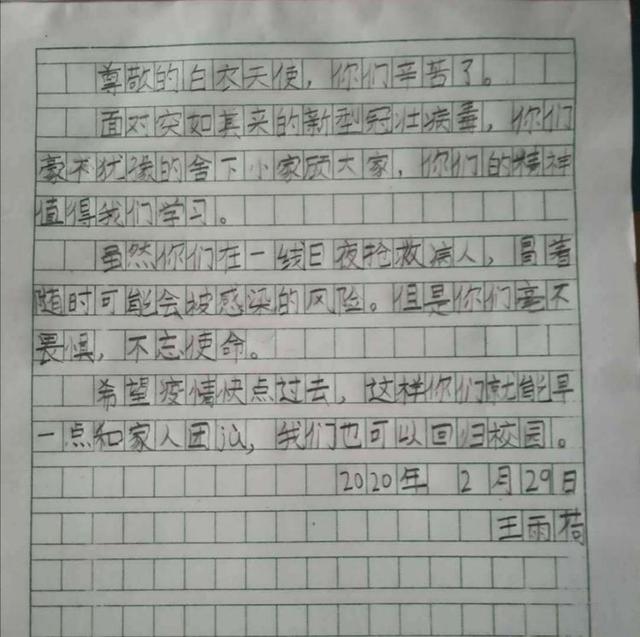 尊敬的白衣天使，你们辛苦了。
面对突如其来的新型冠壮病毒，你们
豪不犹豫的舍下小家顾大家，你们的精神
值得我们学习。
虽然你们在一线日夜抢救病人，冒着
随时可能会被感染的风险。但是你们毫不
畏惧，不忘使命。
希望疫情快点过去，这样你们就能早
一点和家人团讪，我们也可以回归校园。
2020年 2月29日
王雨荷